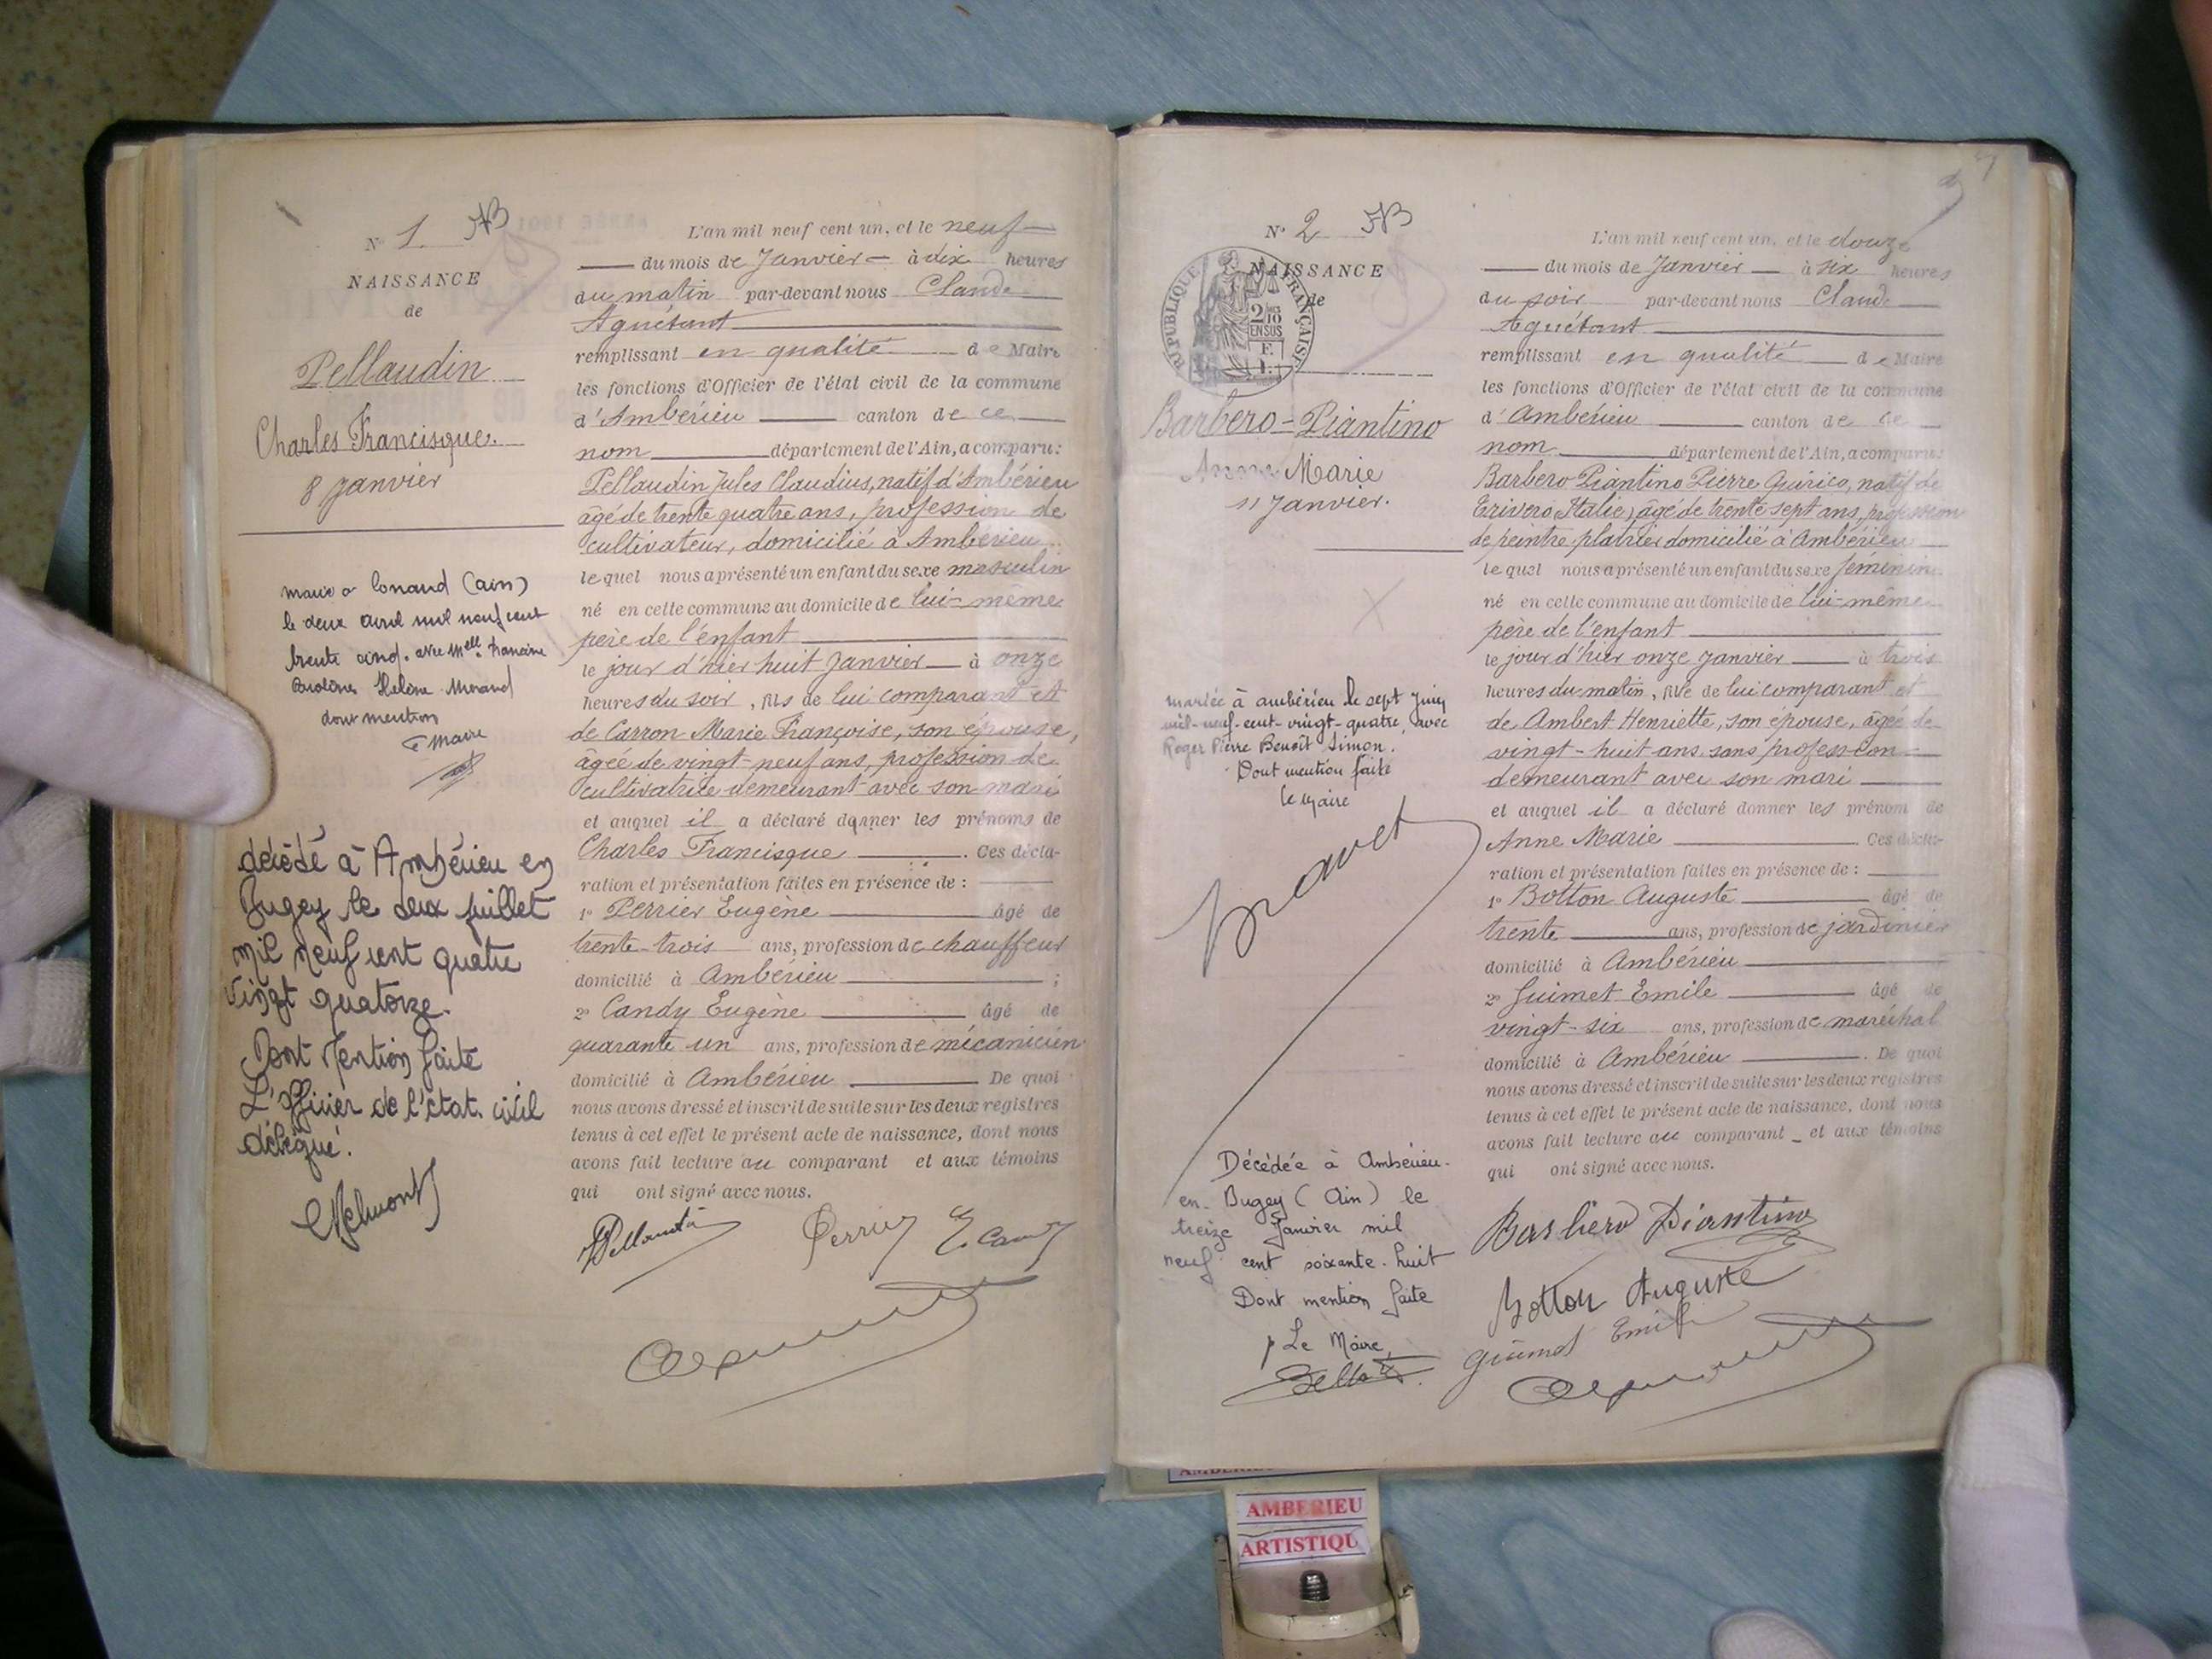 N° 1. AB
NAISSANCE
de
Pellaudin
Charles Francisque
8 Janvier
marié à (ain)
le deux avril mil neuf cent
trente cinq. avec Melle Francine
Hélène Morand
dont mention
Maire
décédé à Ambérieu en
Bugey le deux juillet
mil neuf cent quatre
vingt quatorze.
Dont Mention faite
L'Officier de l'état civil
délégué.
L'an mil neuf cent un, et le neuf
du mois de Janvier à dix heures
du matin par-devant nous Claude
Aguétant
remplissant en qualité de Maire
les fonctions d'Officier de l'état civil de la commune
d'Ambérieu canton de ce
nom département de l'Ain, a comparu:
Pellaudin Jules Claudius, natif d'Ambérieu
âgé de trente quatre ans, profession de
cultivateur, domicilié à Ambérieu
lequel nous a présenté un enfant du sexe masculin
né en cette commune au domicile de lui-même
père de l'enfant
le jour d'hier huit Janvier à onze
heures du soir, fils de lui comparant et
de Carron Marie Françoise, son épouse,
âgée de vingt-neuf ans, profession de
cultivatrice demeurant avec son mari
et auquel il a déclaré donner les prénoms de
Charles Francisque. Ces décla-
ration et présentation faites en présence de :
1° Perrier Eugène âgé de
trente-trois ans, profession de chauffeur
domicilié à Ambérieu ;
2° Candy Eugène âgé de
quarante un ans, profession de mécanicien
domicilié à Ambérieu De quoi
nous avons dressé et inscrit de suite sur les deux registres
tenus à cet effet le présent acte de naissance, dont nous
avons fait lecture au comparant et aux témoins
qui ont signé avec nous.
Pellaudin Perrier E. Candy
N° 2 AB
NAISSANCE
de
RÉPUBLIQUE FRANÇAISE
2/10 EN SUS
Barbero-Piantino
Anne Marie
11 Janvier.
mariée à ambérieu le sept Juin
mil-neuf-cent-vingt-quatre, avec
Roger Pierre Benoît Simon.
Dont mention faite
Le Maire
Décédée à Ambérieu-
en-Bugey (Ain) le
treize Janvier mil
neuf cent soixante-huit
Dont mention faite
p Le Maire,
L'an mil neuf cent un, et le douze
du mois de Janvier à six heures
du soir par-devant nous Claude
Aguétant
remplissant en qualité de Maire
les fonctions d'Officier de l'état civil de la commune
d'Ambérieu canton de ce
nom département de l'Ain, a comparu:
Barbero Piantino Pierre Quirico, natif de
Trivero Italie, âgé de trente sept ans, profession
de peintre-platrier domicilié à Ambérieu
lequel nous a présenté un enfant du sexe féminin
né en cette commune au domicile de lui-même
père de l'enfant
le jour d'hier onze Janvier à trois
heures du matin, fille de lui comparant et
de Ambert Henriette, son épouse, âgée de
vingt-huit ans sans profession
demeurant avec son mari
et auquel il a déclaré donner les prénom de
Anne Marie. Ces décla-
ration et présentation faites en présence de :
1° Botton Auguste âgé de
trente ans, profession de jardinier
domicilié à Ambérieu
2° Guimet Emile âgé de
vingt-six ans, profession de maréchal
domicilié à Ambérieu. De quoi
nous avons dressé et inscrit de suite sur les deux registres
tenus à cet effet le présent acte de naissance, dont nous
avons fait lecture au comparant et aux témoins
qui ont signé avec nous.
Barbero Piantino
Botton Auguste
Guimet Emile
AMBERIEU
ARTISTIQU